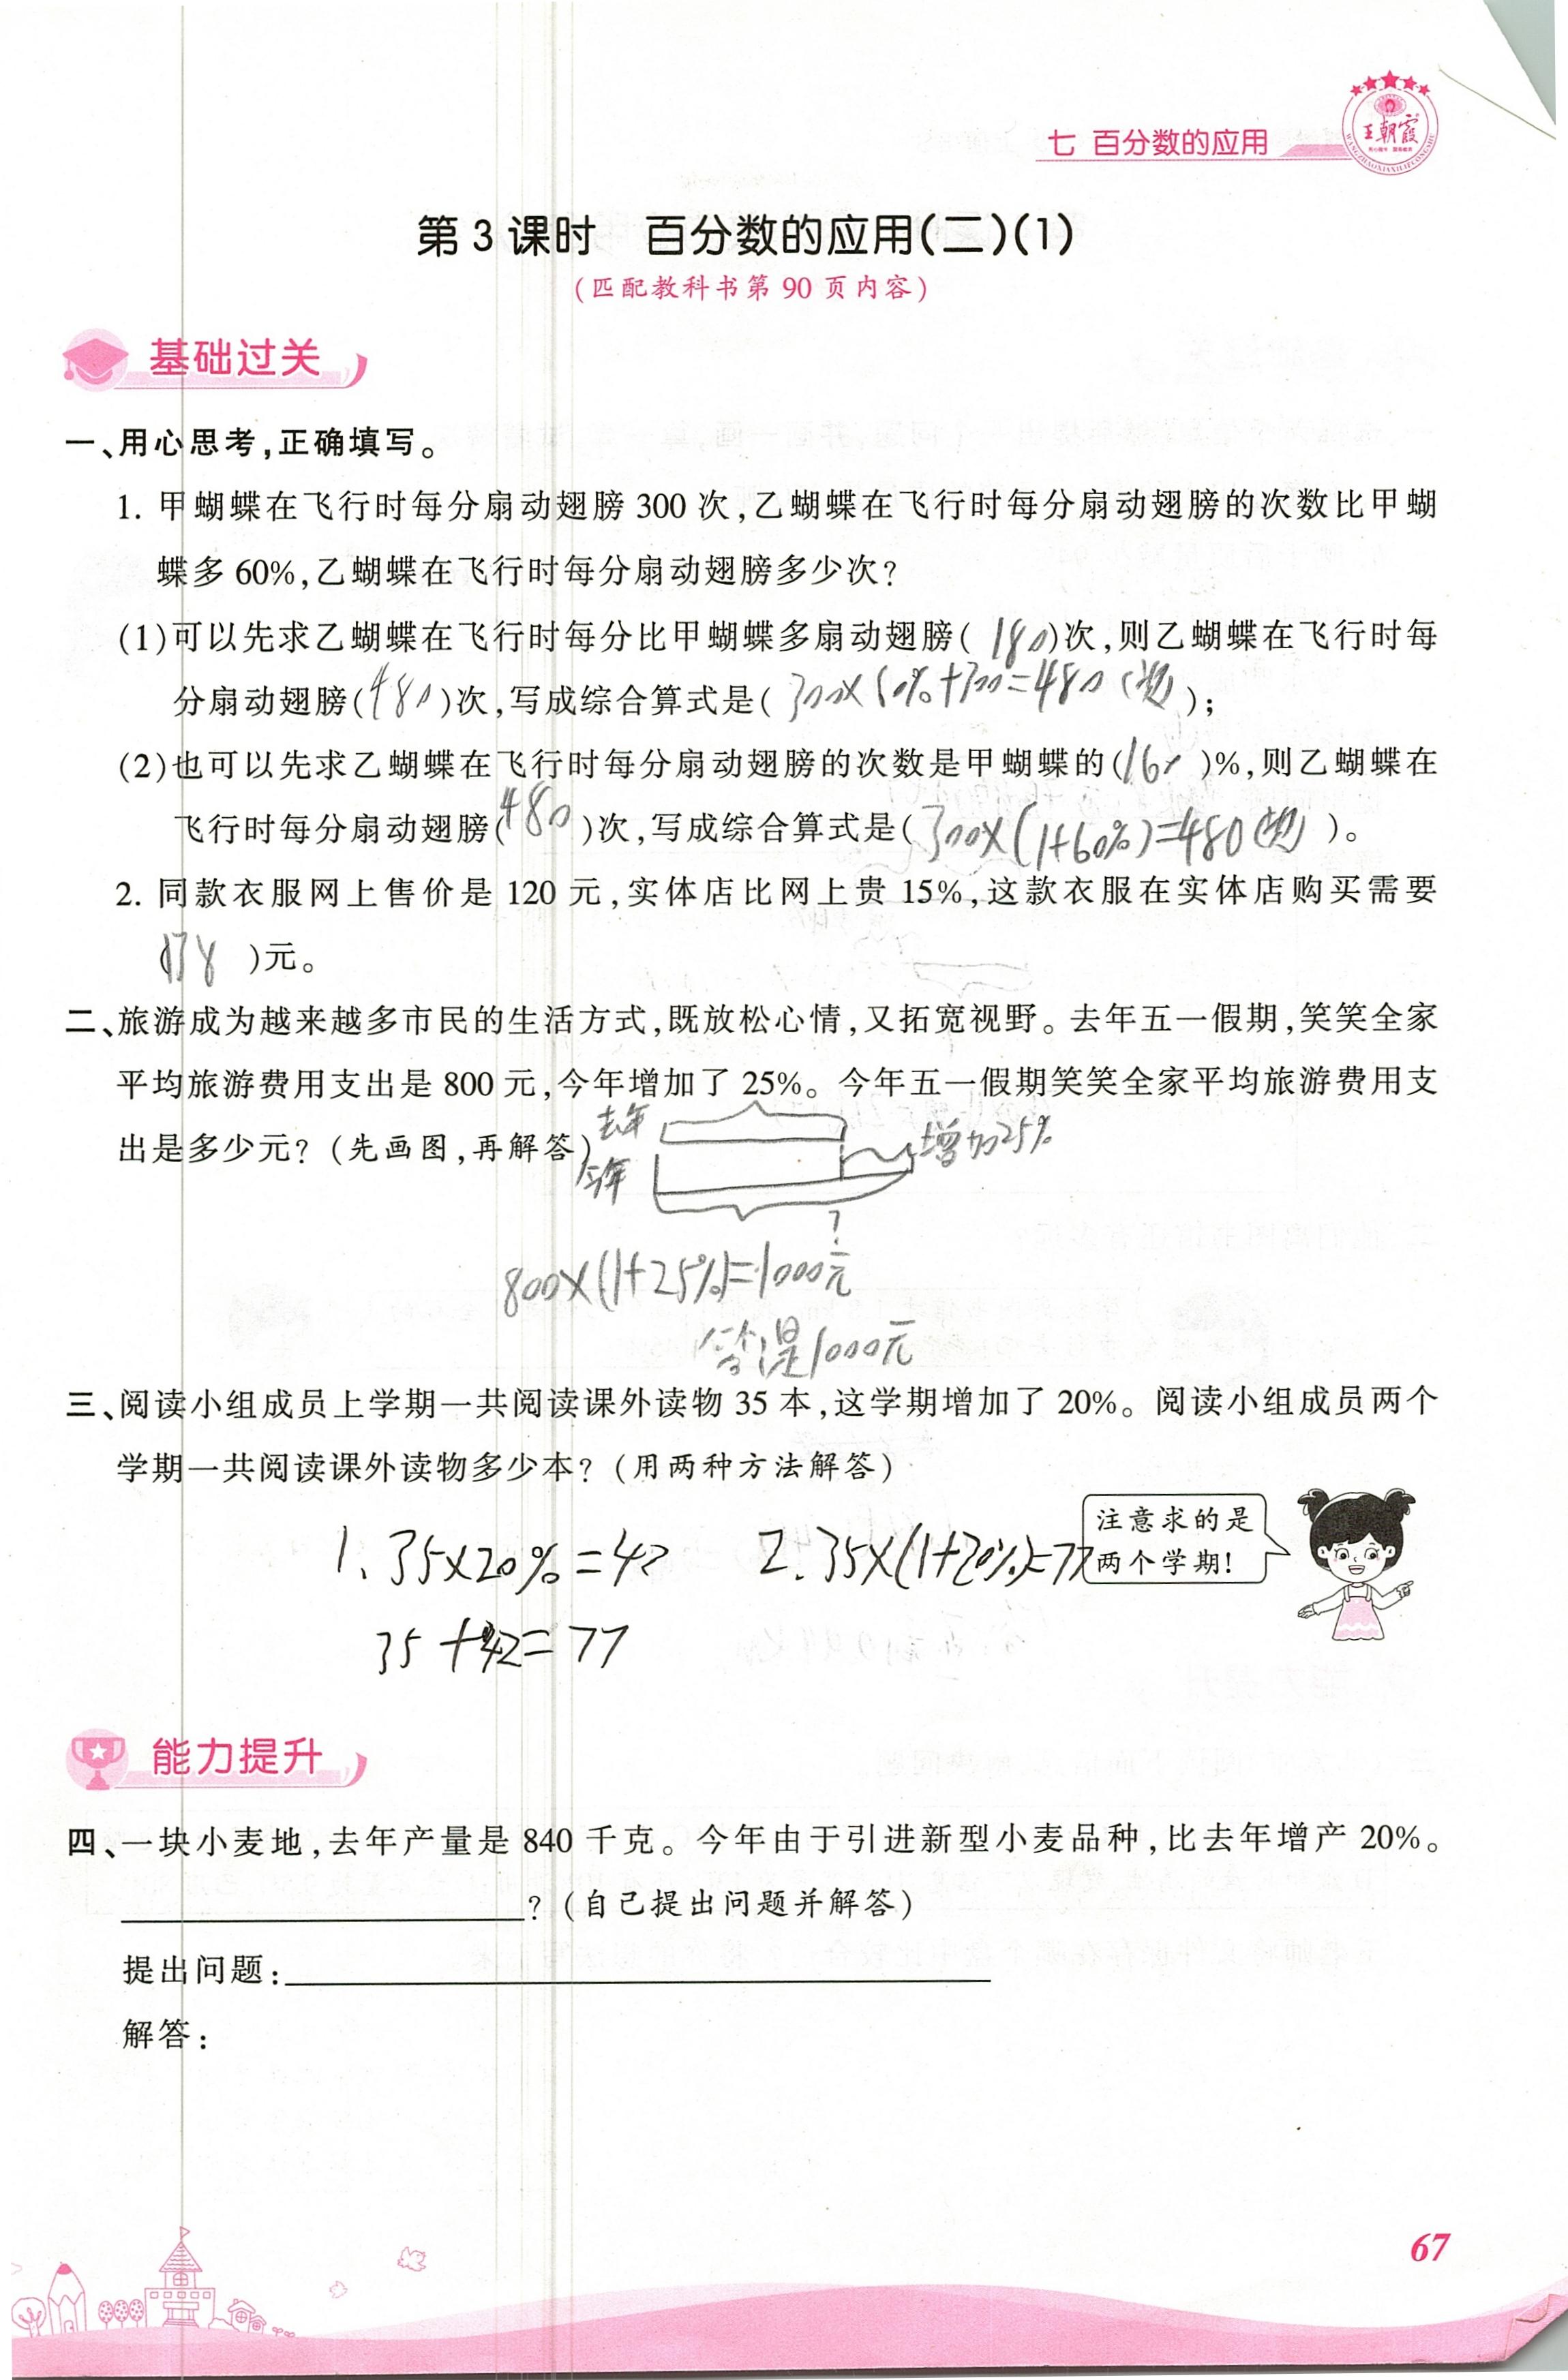 七 百分数的应用
王朝霞
第 3 课时 百分数的应用(二)(1)
(匹配教科书第 90 页内容)
基础过关
一、用心思考,正确填写。
1. 甲蝴蝶在飞行时每分扇动翅膀 300 次,乙蝴蝶在飞行时每分扇动翅膀的次数比甲蝴
蝶多 60%,乙蝴蝶在飞行时每分扇动翅膀多少次?
(1)可以先求乙蝴蝶在飞行时每分比甲蝴蝶多扇动翅膀( 180 )次,则乙蝴蝶在飞行时每
分扇动翅膀( 480 )次,写成综合算式是( 300×60%+300=480(次) );
(2)也可以先求乙蝴蝶在飞行时每分扇动翅膀的次数是甲蝴蝶的( 160 )%,则乙蝴蝶在
飞行时每分扇动翅膀( 480 )次,写成综合算式是( 300×(1+60%)=480(次) )。
2. 同款衣服网上售价是 120 元,实体店比网上贵 15%,这款衣服在实体店购买需要
( 138 )元。
二、旅游成为越来越多市民的生活方式,既放松心情,又拓宽视野。去年五一假期,笑笑全家
平均旅游费用支出是 800 元,今年增加了 25%。今年五一假期笑笑全家平均旅游费用支
出是多少元?(先画图,再解答)
去年
增加25%
今年
?
800×(1+25%)=1000元
答:是1000元
三、阅读小组成员上学期一共阅读课外读物 35 本,这学期增加了 20%。阅读小组成员两个
学期一共阅读课外读物多少本?(用两种方法解答)
注意求的是
两个学期!
1. 35×20%=42
2. 35×(1+20%)=77
35+42=77
能力提升
四、一块小麦地,去年产量是 840 千克。今年由于引进新型小麦品种,比去年增产 20%。
?(自己提出问题并解答)
提出问题:
解答:
67